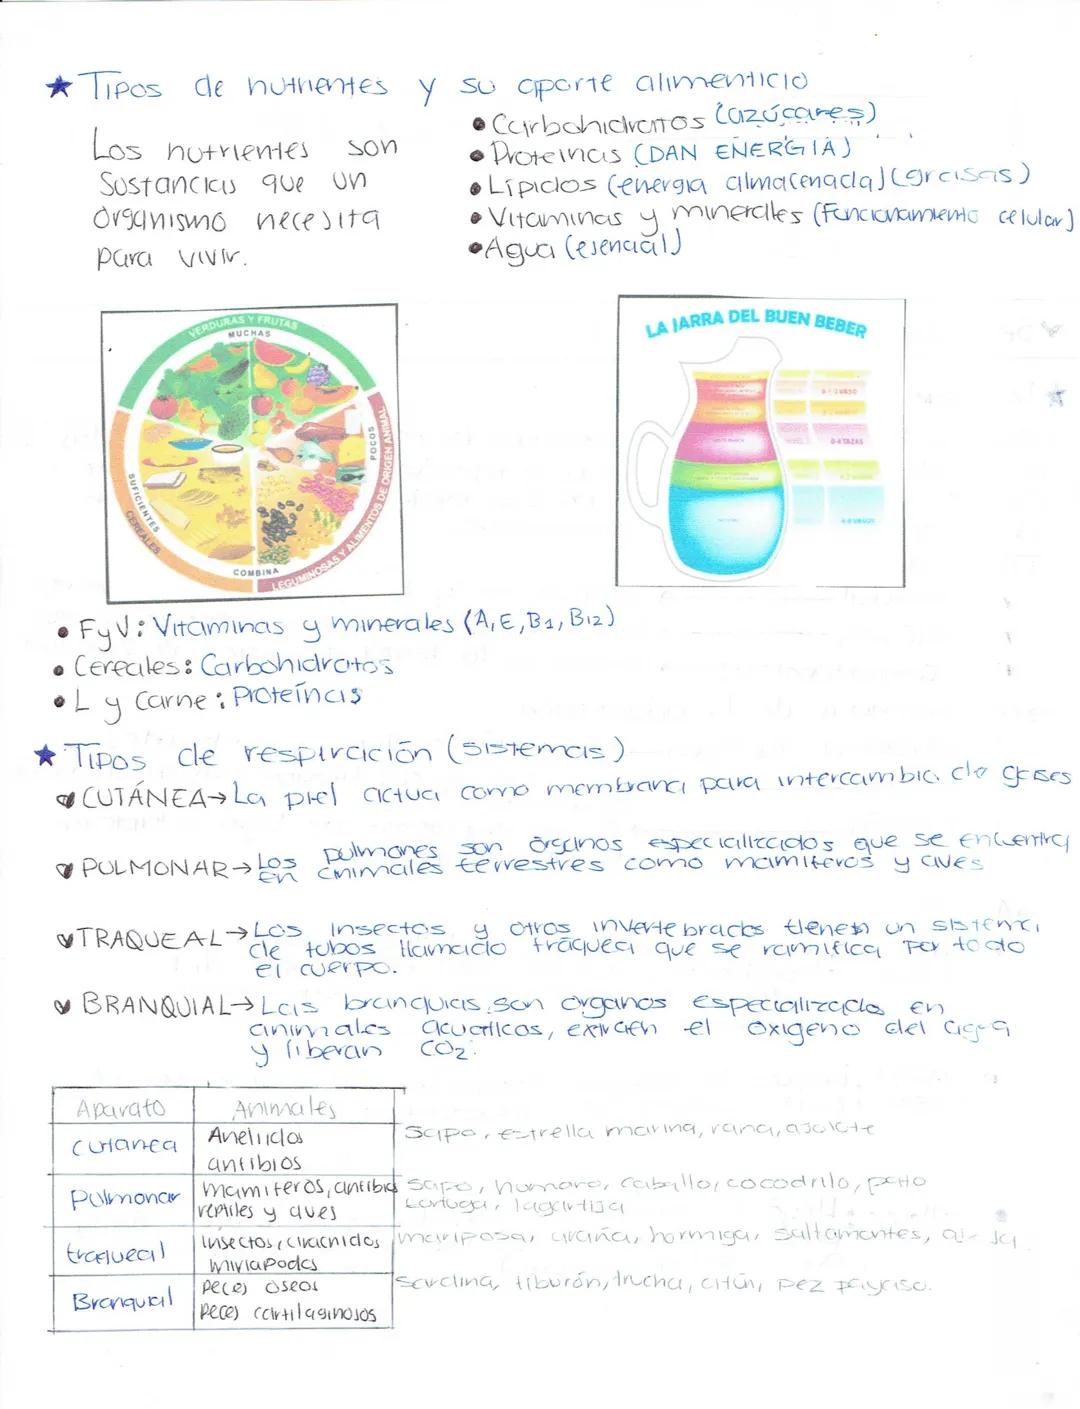 ★ Tipos de nutrientes y su aporte alimenticio
Los nutrientes son
sustancias que un
organismo necesita
para vivir.
• Carbohidratos (azúcares)
• Proteínas (DAN ENERGÍA)
• Lípidos (energía almacenada) (grasas)
• Vitaminas y minerales (Funcionamiento celular)
• Agua (esencial)
VERDURAS Y FRUTAS
MUCHAS
SUFICIENTES
CEREALES
COMBINA
POCOS
LEGUMINOSAS Y ALIMENTOS DE ORIGEN ANIMAL
LA JARRA DEL BUEN BEBER
0-4 TAZAS
• FyV: Vitaminas y minerales (A, E, B1, B12)
• Cereales: Carbohidratos
• L y Carne: Proteínas
★ Tipos de respiración (sistemas)
CUTÁNEA→La piel actua como membrana para intercambio de gases
PULMONAR→Los pulmones son órganos especializados que se encuentra
en animales terrestres como mamíferos y aves
TRAQUEAL→Los insectos y otros invertebrados tienen un sistema
de tubos llamado traquea que se ramifica por todo
el cuerpo.
BRANQUIAL→Las branquias son organos especializados en
animales acuaticos, extraen el oxigeno del agua
y liberan CO2.
Aparato Animales
cutanea Anelidos
anfibios
Sapo, estrella marina, rana, ajolote
Pulmonar mamiferos, anfibios
reptiles y aves
sapo, humano, caballo, cocodrilo, perro
tortuga, lagartija
traqueal insectos, aracnidos
miriapodos
mariposa, araña, hormiga, saltamontes,
Branquial peces oseos
peces cartilaginosos
Sardina, tiburón, trucha, atún, pez payaso.